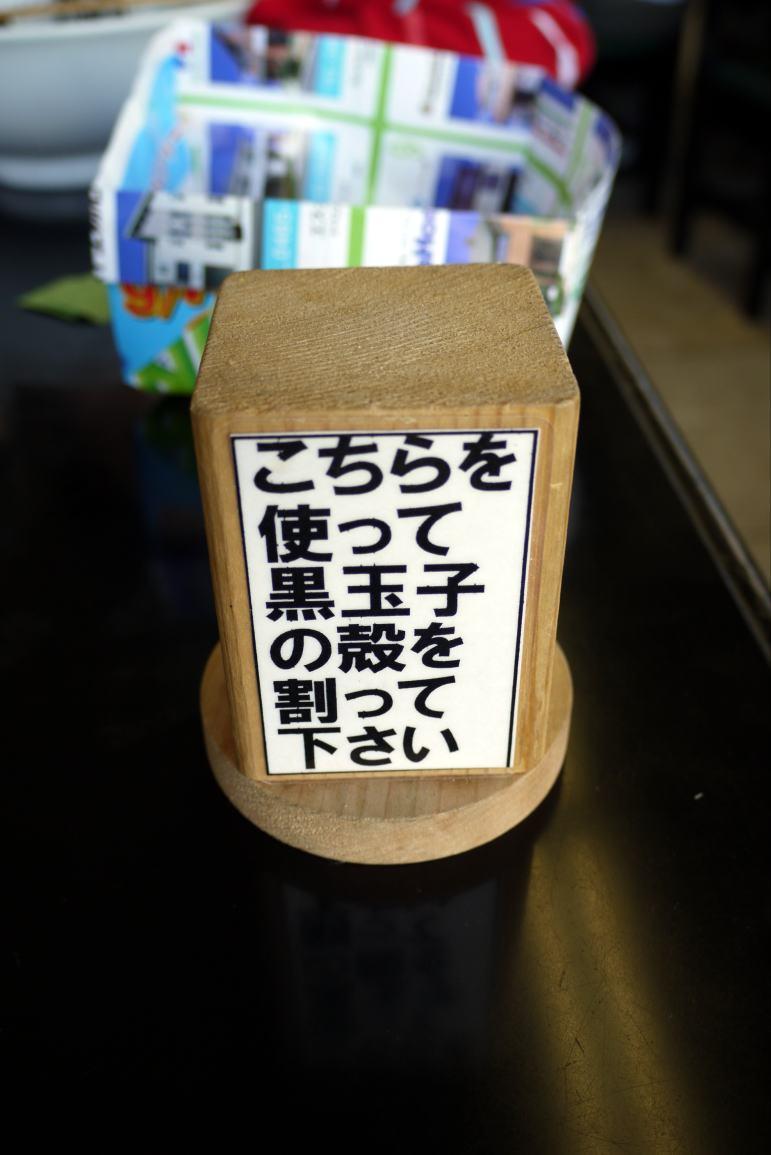 こちらを
使って
黒玉子
の殻を
割って
下さい